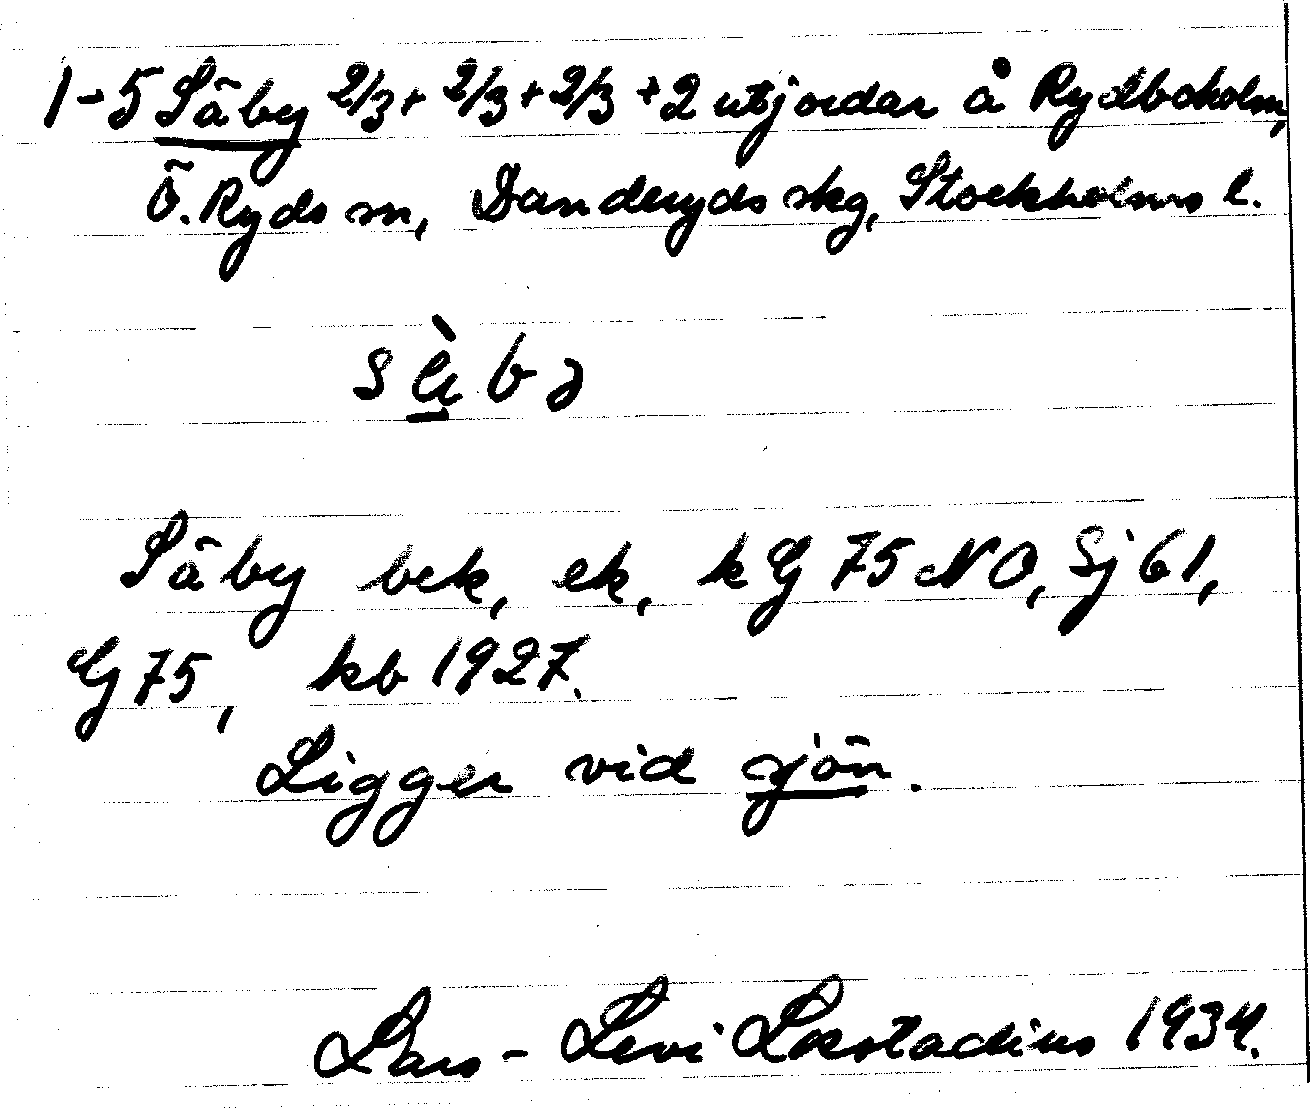 1-5 Säby 2/3 + 2/3 + 2/3 + 2 utjordar å Rydboholm,
Ö. Ryds sn, Danderyds skg, Stockholms l.
Säby bek, ek, kG 75 NO, Sj 61,
G 75, kb 1927.
Ligger vid sjön.
Lars-Levi Læstadius 1934.